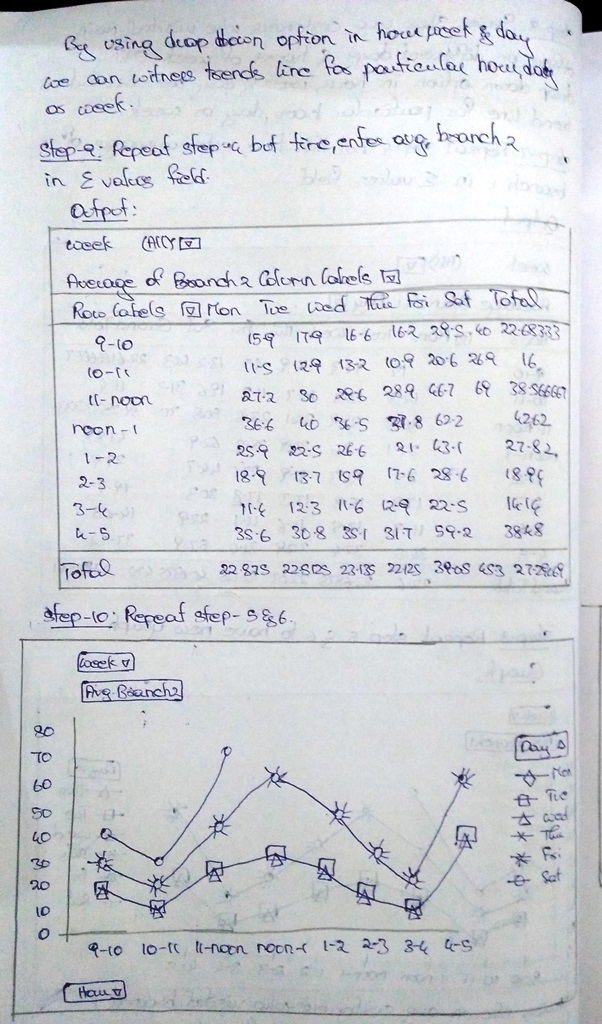 By using drop down option in hour, week & day
we can witness trends line for particular hour, day
or week.
Step-9: Repeat step-4 but time, enter avg. branch 2
in Σ values field.
Output:
Week (All)
Average of Branch 2 Column Labels
Row Labels Mon Tue Wed Thu Fri Sat Total
9-10 15.9 17.9 16.6 16.2 39.5 40 22.68333
10-11 11.5 12.9 13.2 10.9 20.6 26.9 16
11-noon 27.2 30 29.6 28.9 46.7 69 38.566667
noon-1 36.6 40 36.5 37.8 62.2 42.62
1-2 25.9 22.5 26.6 21. 43.1 27.82
2-3 18.9 13.7 15.9 17.6 28.6 18.94
3-4 11.4 12.3 11.6 12.9 22.5 14.14
4-5 35.6 30.8 35.1 31.7 59.2 38.48
Total 22.875 22.5125 23.135 22.125 39.05 45.3
Step-10: Repeat step-5 & 6.
Week
Avg. Branch 2
80
70
60
50
40
30
20
10
0
9-10 10-11 11-noon noon-1 1-2 2-3 3-4 4-5
Day
Mon
Tue
Wed
Thu
Fri
Sat
Hour